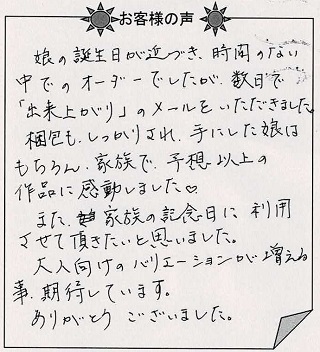 お客様の声
娘の誕生日が近づき、時間のない
中でのオーダーでしたが、数日で
「出来上がり」のメールをいただきました。
梱包も、しっかりされ、手にした娘は
もちろん、家族で、予想以上の
作品に感動しました♡
また、家族の記念日に利用
させて頂きたいと思いました。
大人向けのバリエーションが増える
事、期待しています。
ありがとうございました。